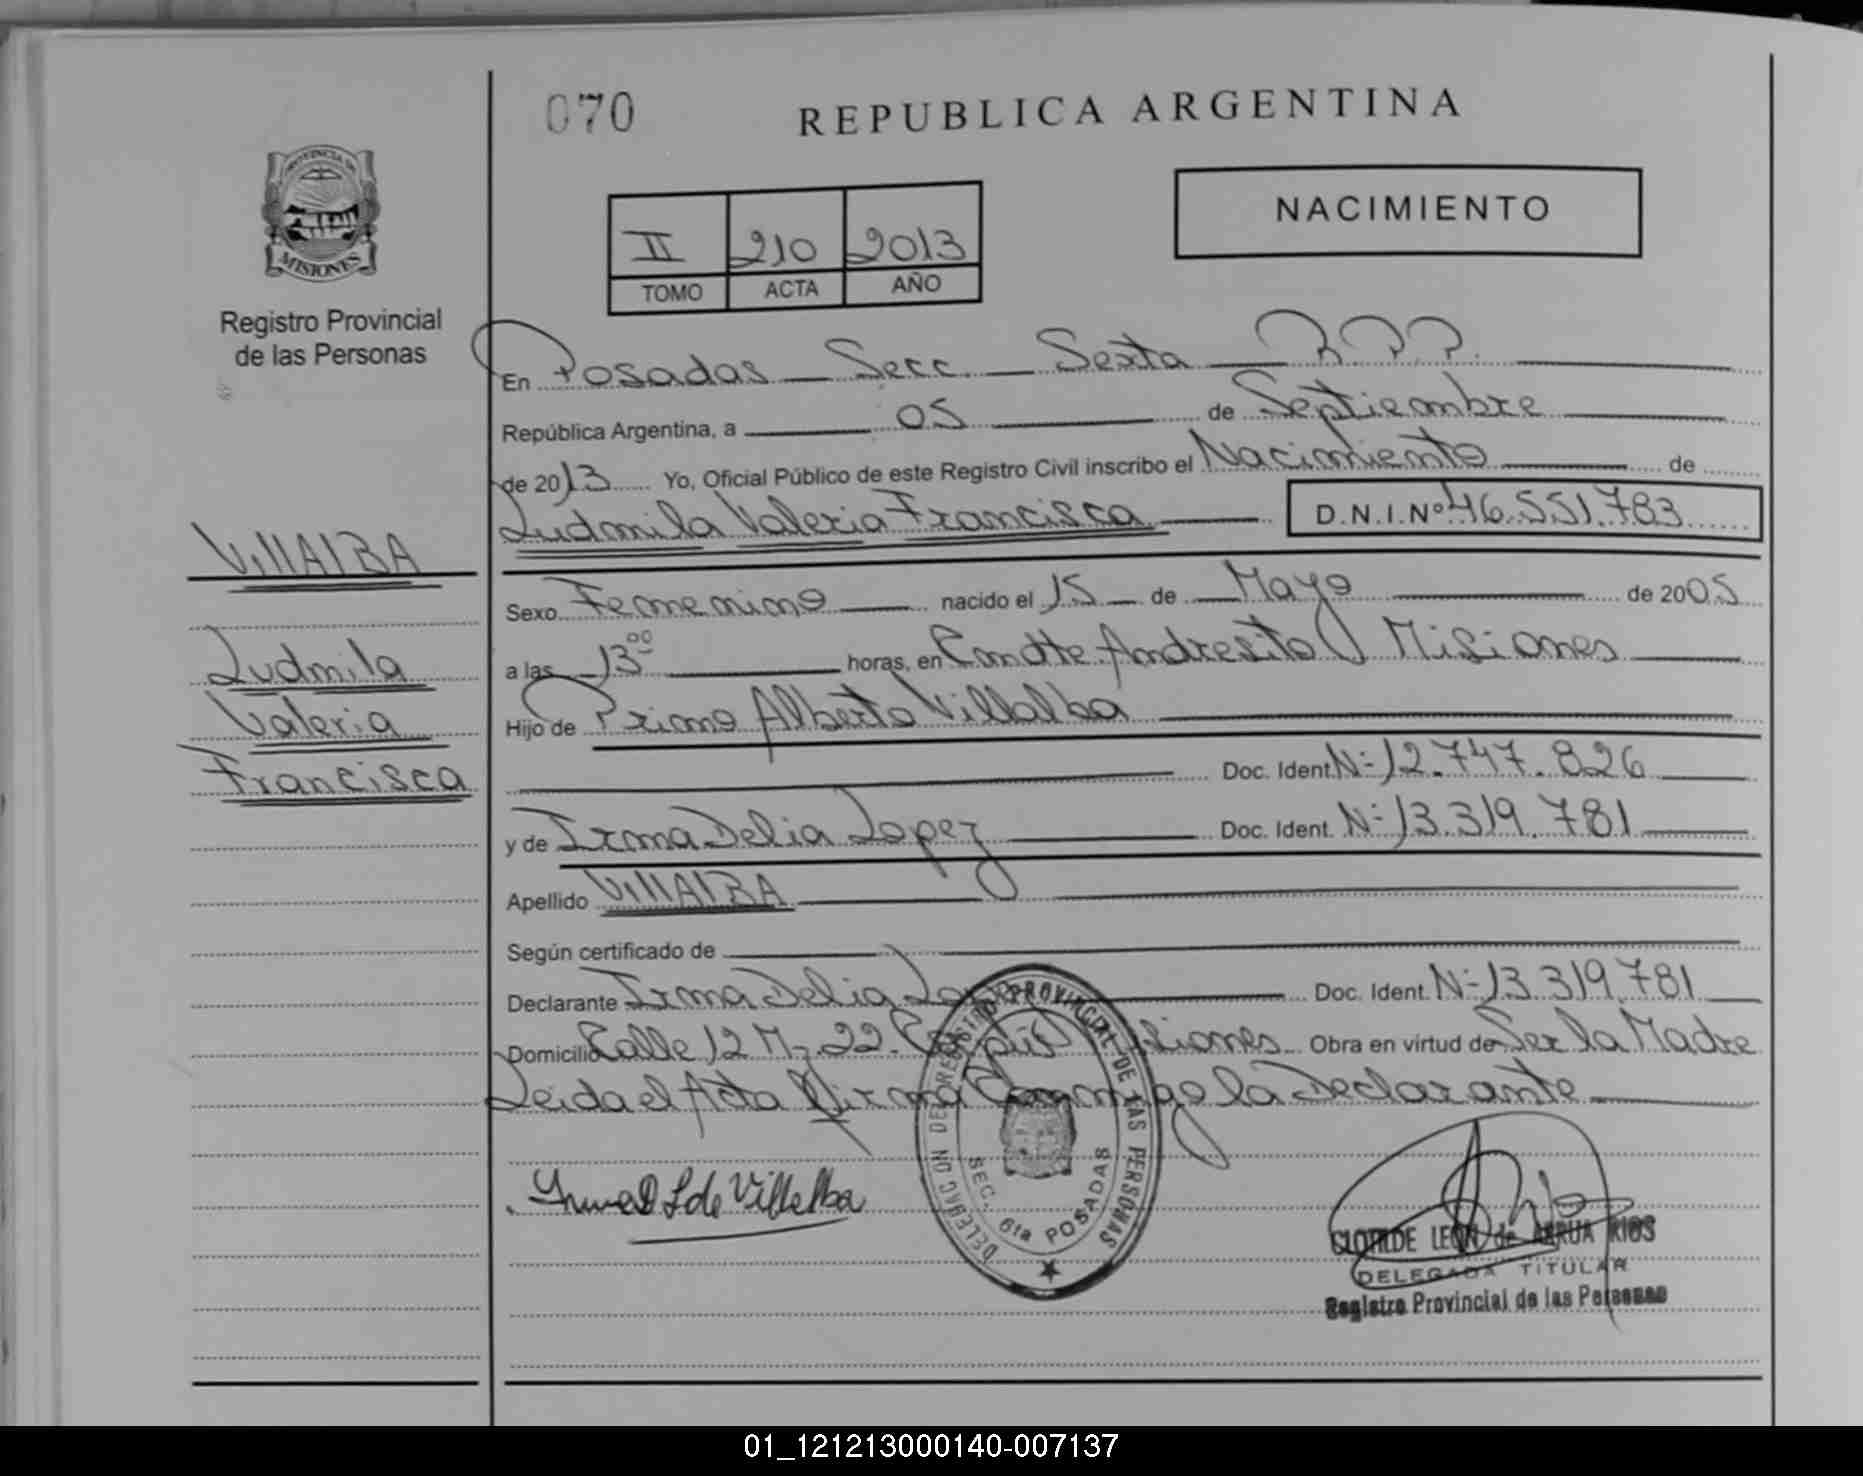 070
REPUBLICA ARGENTINA
PROVINCIA DE
MISIONES
Registro Provincial
de las Personas
NACIMIENTO
II 210 2013
TOMO ACTA AÑO
En Posadas Secc. Sexta R.P.P.
República Argentina, a 05 de Septiembre
de 2013 Yo, Oficial Público de este Registro Civil inscribo el Nacimiento de
Ludmila Valeria Francisca D.N.I.Nº 46.551.783
VIllAlBA
Ludmila
Valeria
Francisca
Sexo Femenino nacido el 15 de Mayo de 2005
a las 13 00 horas, en Cmdtte. Andresito Misiones
Hijo de Primo Alberto Villalba
Doc. Ident. Nº 12.747.826
y de Irma Delia Lopez Doc. Ident. Nº 13.319.781
Apellido VIllAlBA
Según certificado de
Declarante Irma Delia Lopez Doc. Ident. Nº 13.319.781
Domicilio Calle 12 M- 22. Misiones Obra en virtud de Ser la Madre
Leida el Acta Firma Conmigo la Declarante
DELEGACION DEL REGISTRO PROVINCIAL DE LAS PERSONAS
SEC. 6ta POSADAS
L de Villalba
CLOTILDE LEON de ARRUA RIOS
DELEGADA TITULAR
Registro Provincial de las Personas
01_121213000140-007137